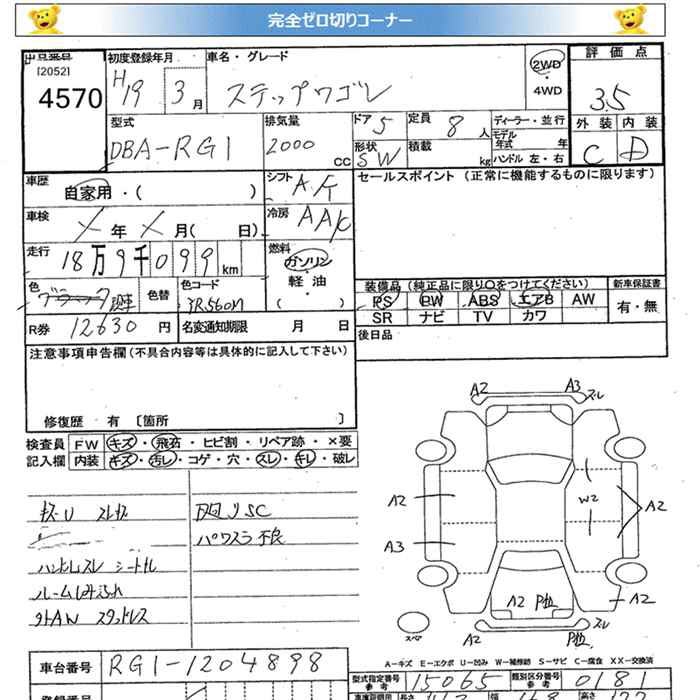 完全ゼロ切りコーナー
出品番号
[2052]
4570
初度登録年月
H19 3月
車名・グレード
ステップワゴン
2WD
4WD
評価点
3.5
外装 内装
C D
型式
DBA-RG1
排気量
2000 cc
ドア 5
定員 8人
形状 SW
積載 kg
ディーラー・並行
モデル年式 年
ハンドル 左・右
車歴
自家用・( )
シフト AT
車検
年 月( 日)
冷房 AAC
走行
18万9千099km
燃料
ガソリン
軽・油
( )
セールスポイント (正常に機能するものに限ります)
色
色替
色コード
R券 12630円
名変通知期限 月 日
装備品 (純正品に限り○をつけてください)
PS PW ABS エアB AW
SR ナビ TV カワ
新車保証書
有・無
後日品
注意事項申告欄(不具合内容等は具体的に記入して下さい)
修復歴 有 〔箇所 〕
検査員記入欄
FW キズ・飛石・ヒビ割・リペア跡・×要
内装 キズ・汚レ・コゲ・穴・スレ・キレ・破レ
ハンドルスレ シートスレ
パワスラ不良
A2 A3 スレ
A2 W2 A2
A3
A2
A2
A2 スレ
スペア
A-キズ E-エクボ U-凹み W-補修跡 S-サビ C-腐食 XX-交換済
車台番号
RG1-1204898
型式指定番号
参考
15065
類別区分番号
参考
0181
登録番号